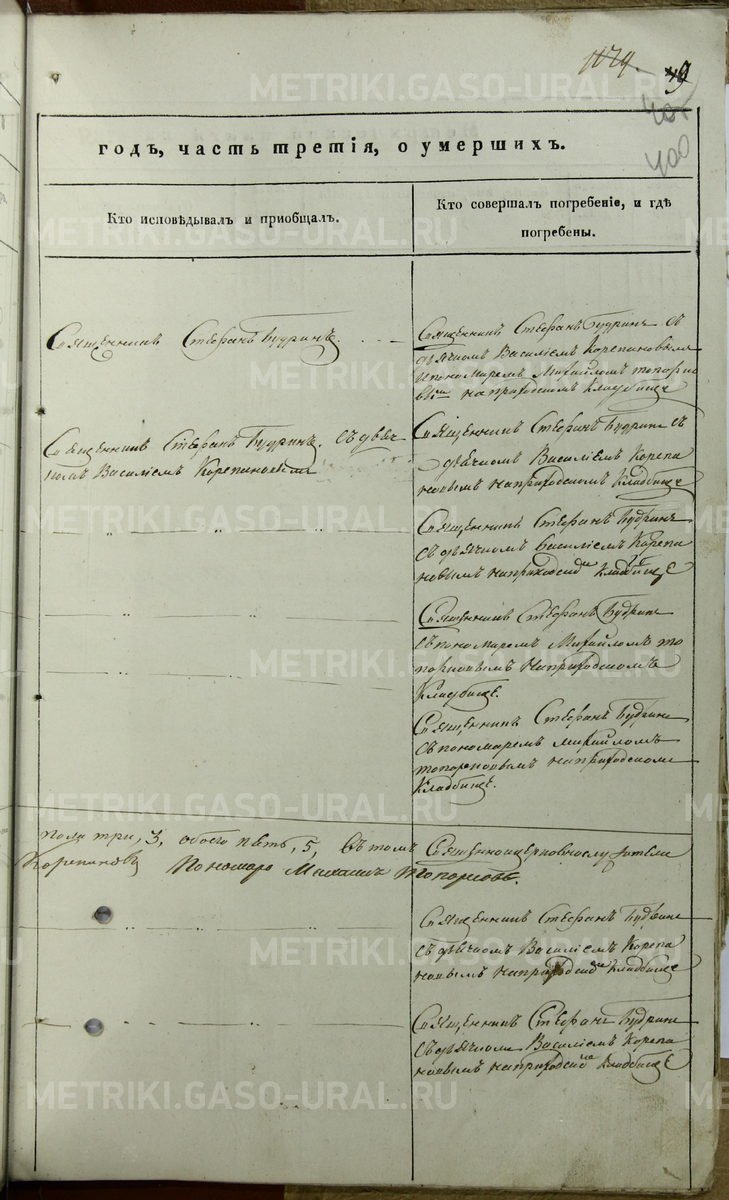 1079.
49
400
годъ, часть третія, о умершихъ.
Кто исповѣдывалъ и приобщалъ.
Кто совершалъ погребеніе, и гдѣ
погребены.
Священникъ Стефанъ Будринъ.
Священникъ Стефанъ Будринъ съ
дьячкомъ Василіемъ Корепановымъ
и пономаремъ Михайломъ Топорко
вымъ на приходскомъ кладбище
Священникъ Стефанъ Будринъ съ дьяч
комъ Василіемъ Корепановымъ
Священникъ Стефанъ Будринъ съ
дьячкомъ Василіемъ Корепа
новымъ на приходскомъ кладбище
Священникъ Стефанъ Будринъ
съ дьячкомъ Василіемъ Корепа
новымъ на приходскомъ кладбище
Священникъ Стефанъ Будринъ
съ пономаремъ Михайломъ То
порковымъ на приходскомъ
кладбище.
Священникъ Стефанъ Будринъ
съ пономаремъ Михайломъ
Топорковымъ на приходскомъ
кладбище.
пола три, 3, обоего пять, 5, въ томъ Священноцерковнослужители
Корепановъ Пономарь Михаилъ Топорковъ.
Священникъ Стефанъ Будринъ
съ дьячкомъ Василіемъ Корепа
новымъ на приходскомъ кладбище
Священникъ Стефанъ Будринъ
съ дьячкомъ Василіемъ Корепа
новымъ на приходскомъ кладбище
METRIKI.GASO-URAL.RU